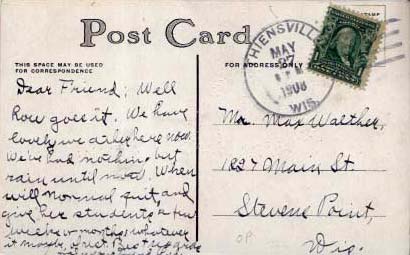 Post Card
THIS SPACE MAY BE USED
FOR CORRESPONDENCE
FOR ADDRESS ONLY
THIENSVILLE
MAY
27
1908
WIS.
Dear Friend: Well
How goes it. We have
lovely weather here now.
We've had nothing but
rain until now. When
will Normal quit, and
give her students a few
weeks or months whatever
it may be, of rest. Best
Mr. Max Walther,
1227 Main St.
Stevens Point,
Wis.